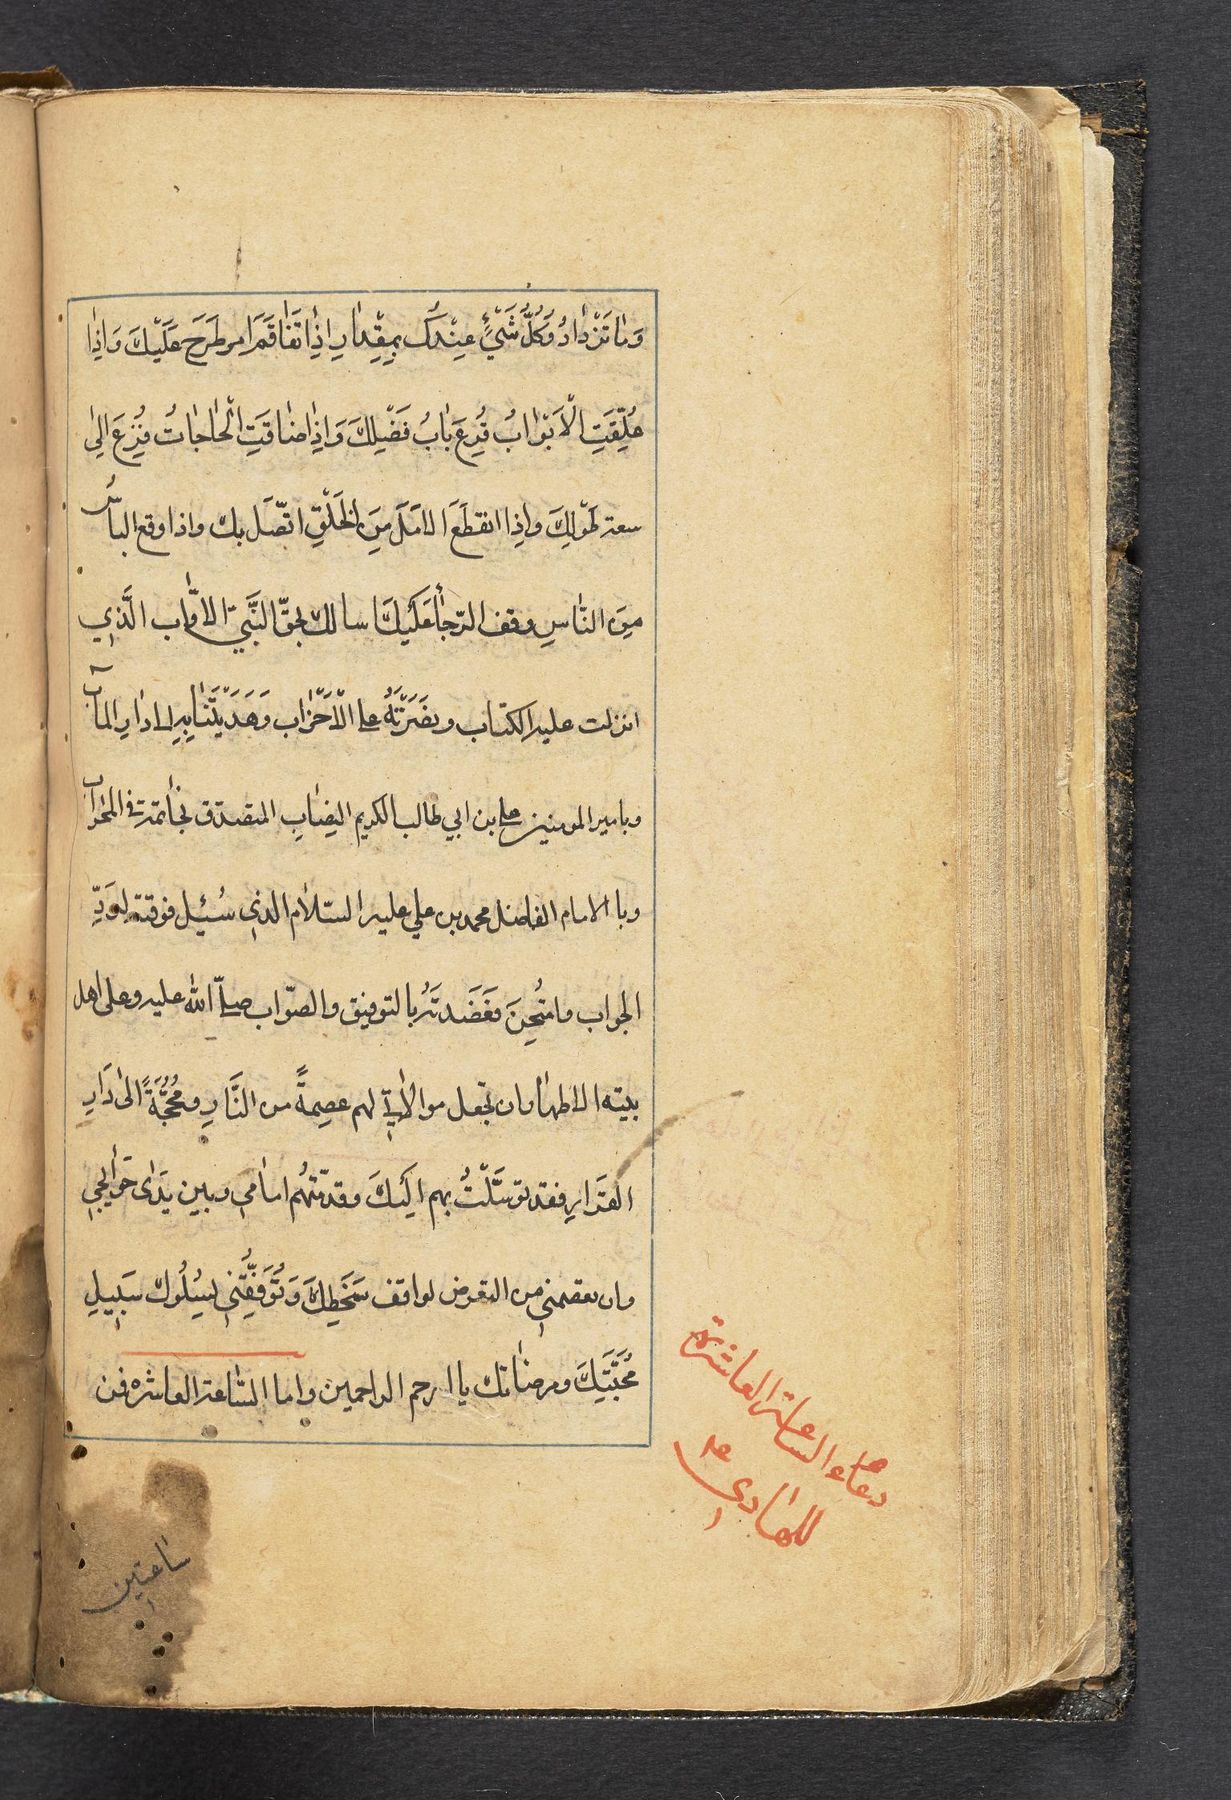 وَمٰا تَزْدٰادُ وَكُلُّ شَيْءٍ عِنْدَكَ بِمِقْدٰارٍ اِذٰا تَفٰاقَمَ اَمر طَرَحَ عَلَيْكَ وَاِذٰا
غُلِّقَتِ الْاَبْوٰابُ قُرِعَ بٰابُ فَضْلِكَ وَاِذٰا ضٰاقَتِ الْحٰاجٰاتُ فُزِعَ اِلىٰ
سعة طَوْلِكَ واِذٰا انقطَعَ الاَمَلَ مِنَ الخَلْقِ اتّصَلَ بك واذا وقع الیاس
مِنَ النّٰاسِ وقف الرّجٰا عَلَيْكَ اسالك بحقّ النَّبِيّ الاوّاب الَّذِي
انزلت عليه الكتاب ونصَرْتَهُ على الْاَحْزٰاب وَهَدَيْتَنٰا بِهِ الى دٰارِ المآب
وبامير المومنين على بن ابي طالب الكريم النِصٰابِ المتصدق بخٰاتمه في المحراب
وبا الامام الفاضل محمد بن علي عليه السّلام الذي سُئِل فوفقته لِرَدِّ
الجواب وامتُحِنَ فَعَضَدتَهُ بالتوفيق والصّواب صلّى اللّٰه عليه وعلى اهل
بيته الاطهٰار وان تجعل موالاتي لهم عصِمةً من النَّارِ ومُحَجَّةً الىٰ دَارِ
القرَارِ فقد توسَّلْتُ بهم اِلَيْكَ وقدّمْتهُم امٰامي وبين يَدَى حَوٰايجي
وان تعصمني من التعرض لمواقف سَخَطِكَ وَتُوَفِّقَنِي لِسُلُوك سَبِيلِ
مُحَبَّتِكَ ومرضٰاتك يا ارحم الراحمين واما السّٰاعة العاشره فمن
دعاء الساعة العاشرة
للهادي ع
ساعتين